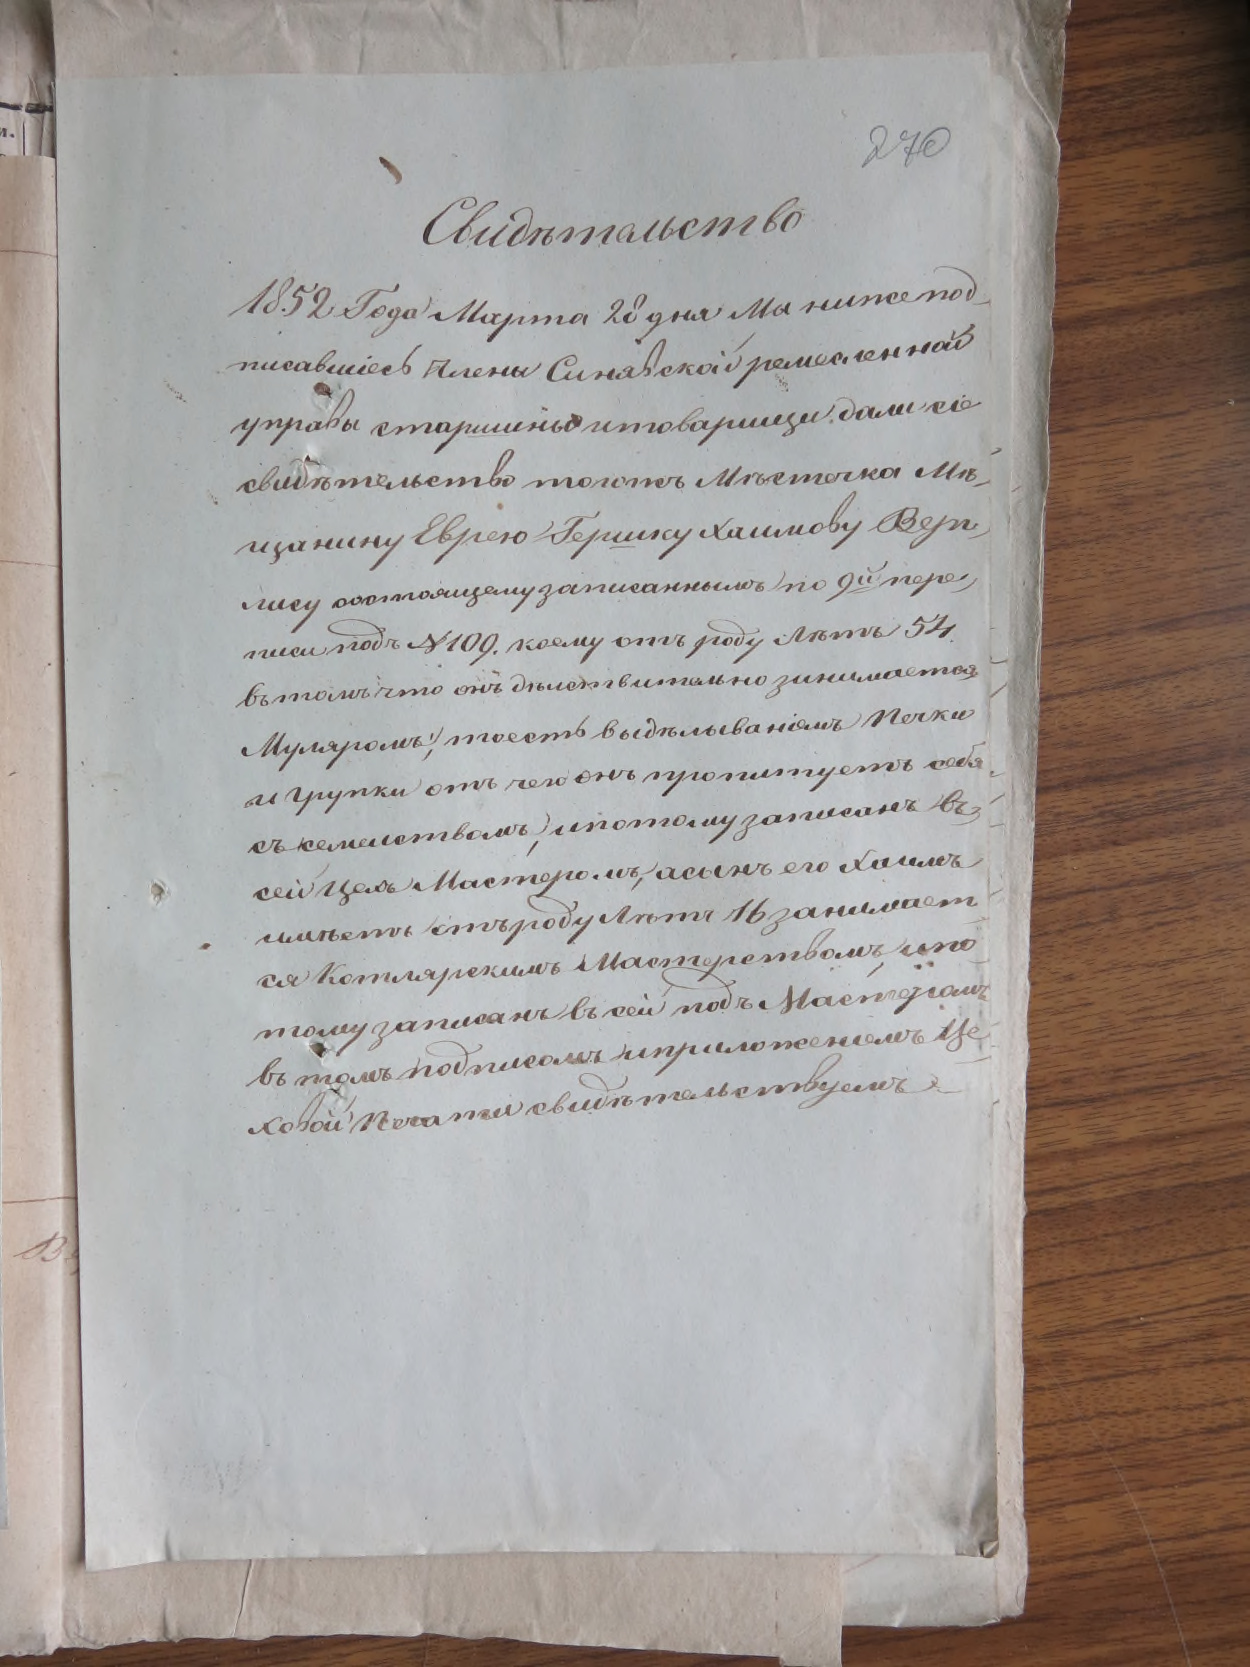 270
Свидѣтельство
1852 Года Марта 28 дня Мы нижепод-
писавшіесь Члены Синявской ремесленной
управы старшины и товарищи дали сіе
свидѣтельство тогожъ Мѣстечка Мѣ-
щанину Еврею Гершку Хаимову Вер-
лису состоящему записаннымъ по 9й пере-
писи подъ №109. коему отъ роду Лѣтъ 54
въ томъ что онъ дѣйствительно зинимается
Муляромъ, тоесть выдѣлываніемъ Печки
и Групки отъ чего онъ пропитуетъ себя
съ семействомъ, ипотому записанъ въ
сей Цехъ Мастеромъ, асынъ его Хаимъ
имѣетъ отъ роду Лѣтъ 16 занимает
ся Котлярскимъ Мастерствомъ, ипо
тому записанъ въ сей подъ Мастеромъ
въ томъ подписомъ иприложеніемъ Це
ховой Печати свидѣтельствуемъ